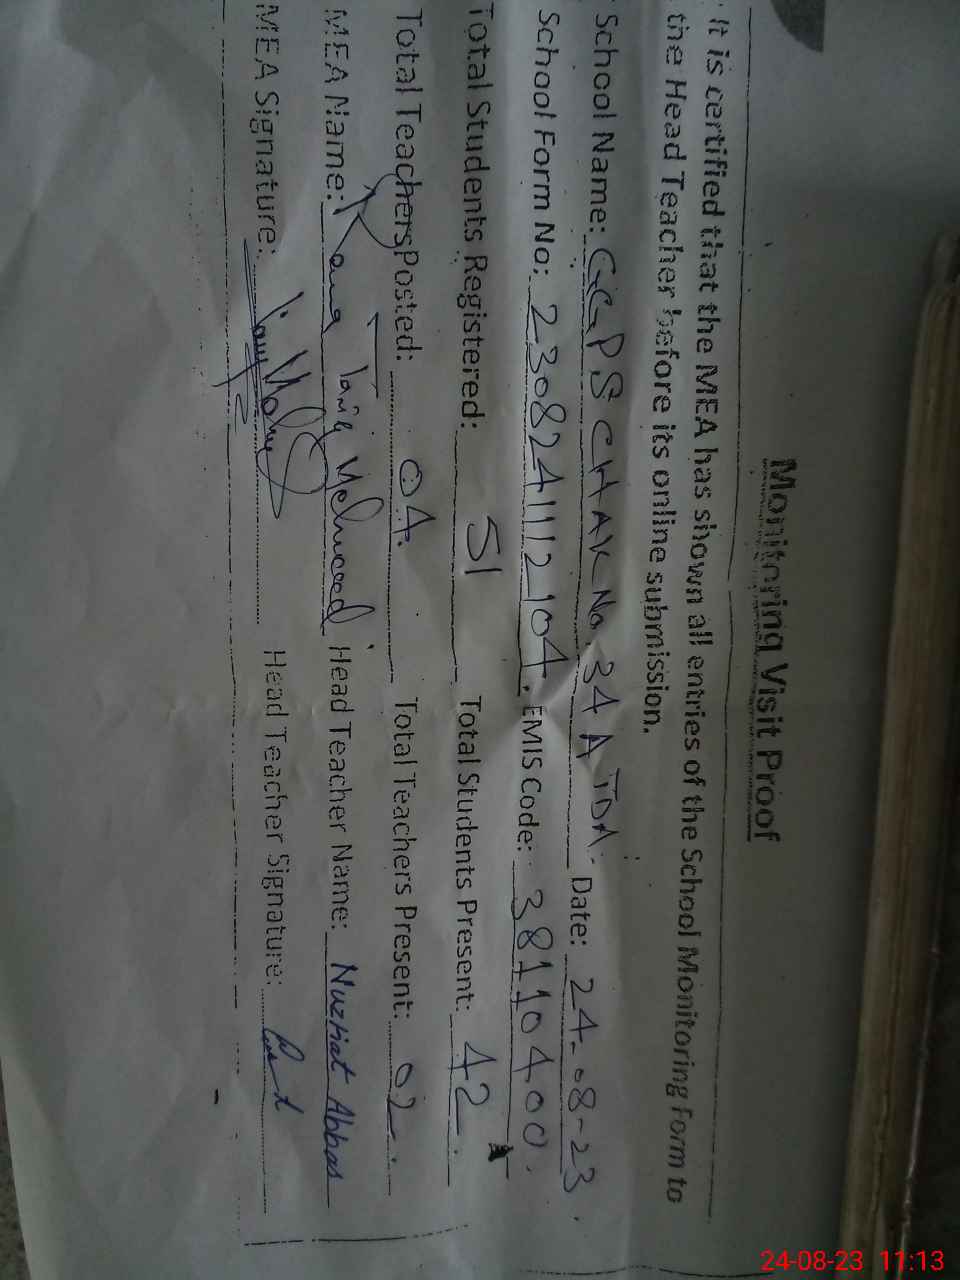 Monitoring Visit Proof
It is certified that the MEA has shown all entries of the School Monitoring Form to
the Head Teacher before its online submission.
School Name: GGPS CHAK No. 34 A TDA. Date: 24-08-23.
School Form No: 2308241112104. EMIS Code: 38110400.
Total Students Registered: 51 Total Students Present: 42.
Total Teachers Posted: 04. Total Teachers Present: 02.
MEA Name: Rana Tariq Mehmood Head Teacher Name: Nuzhat Abbas
MEA Signature: Head Teacher Signature:
24-08-23 11:13